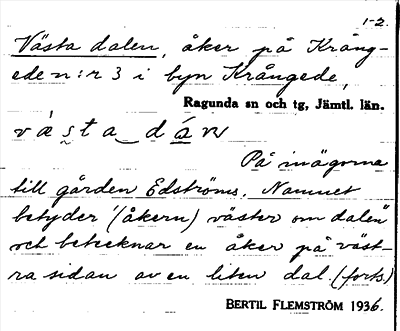 1-2.
Västa dalen, åker på Krång-
ede n:r 3 i byn Krångede,
Ragunda sn och tg, Jämtl. län.
På inägorna
till gården Edströms. Namnet
betyder "(åkern) väster om dalen"
och betecknar en åker på väst-
ra sidan av en liten dal. (forts.)
BERTIL FLEMSTRÖM 1936.